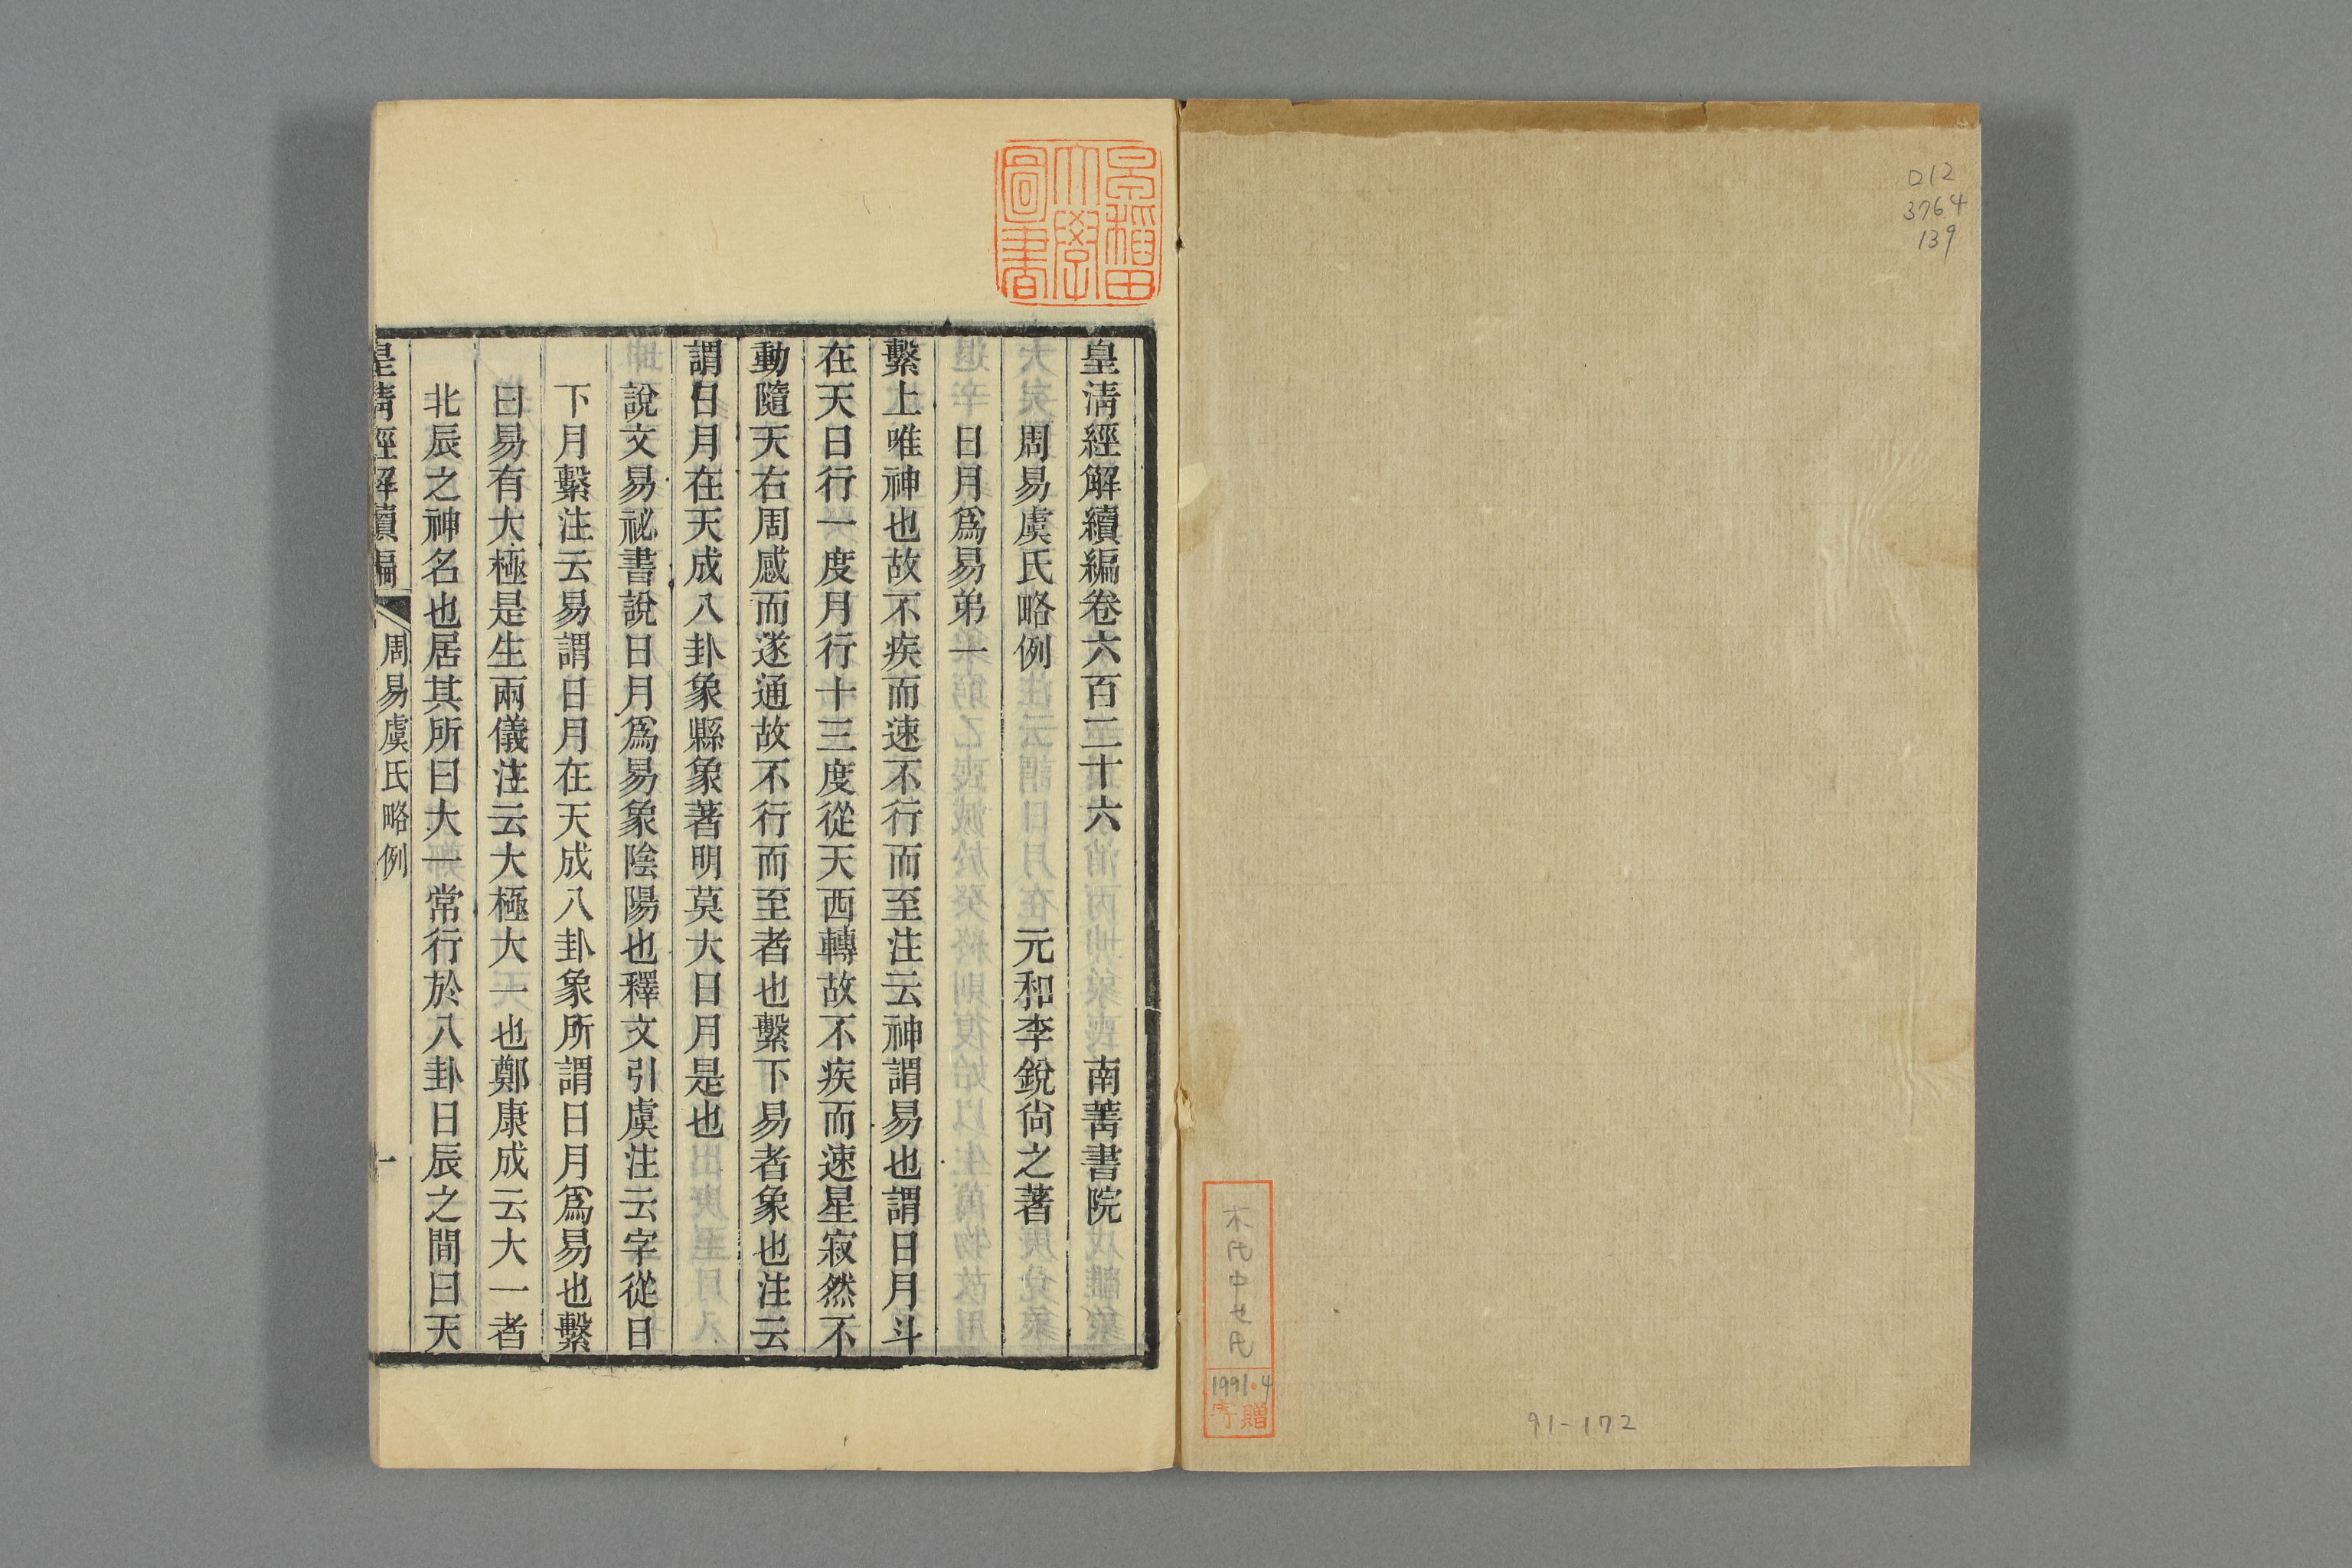 皇淸經解續編卷六百二十六　南菁書院
周易虞氏略例　元和李銳尙之著
日月爲易弟一
繫上唯神也故不疾而速不行而至注云神謂易也謂日月斗
在天日行一度月行十三度從天西轉故不疾而速星寂然不
動隨天右周感而遂通故不行而至者也繫下易者象也注云
謂日月在天成八卦象縣象著明莫大日月是也
說文易祕書說日月爲易象陰陽也釋文引虞注云字從日
下月繫注云易謂日月在天成八卦象所謂日月爲易也繫
曰易有大極是生兩儀注云大極大一也鄭康成云大一者
北辰之神名也居其所曰大一常行於八卦日辰之間曰天
皇淸經解續編　周易虞氏略例　一
早稻田
大學
圖書
012
3764
139
1991.4
寄贈
91-172